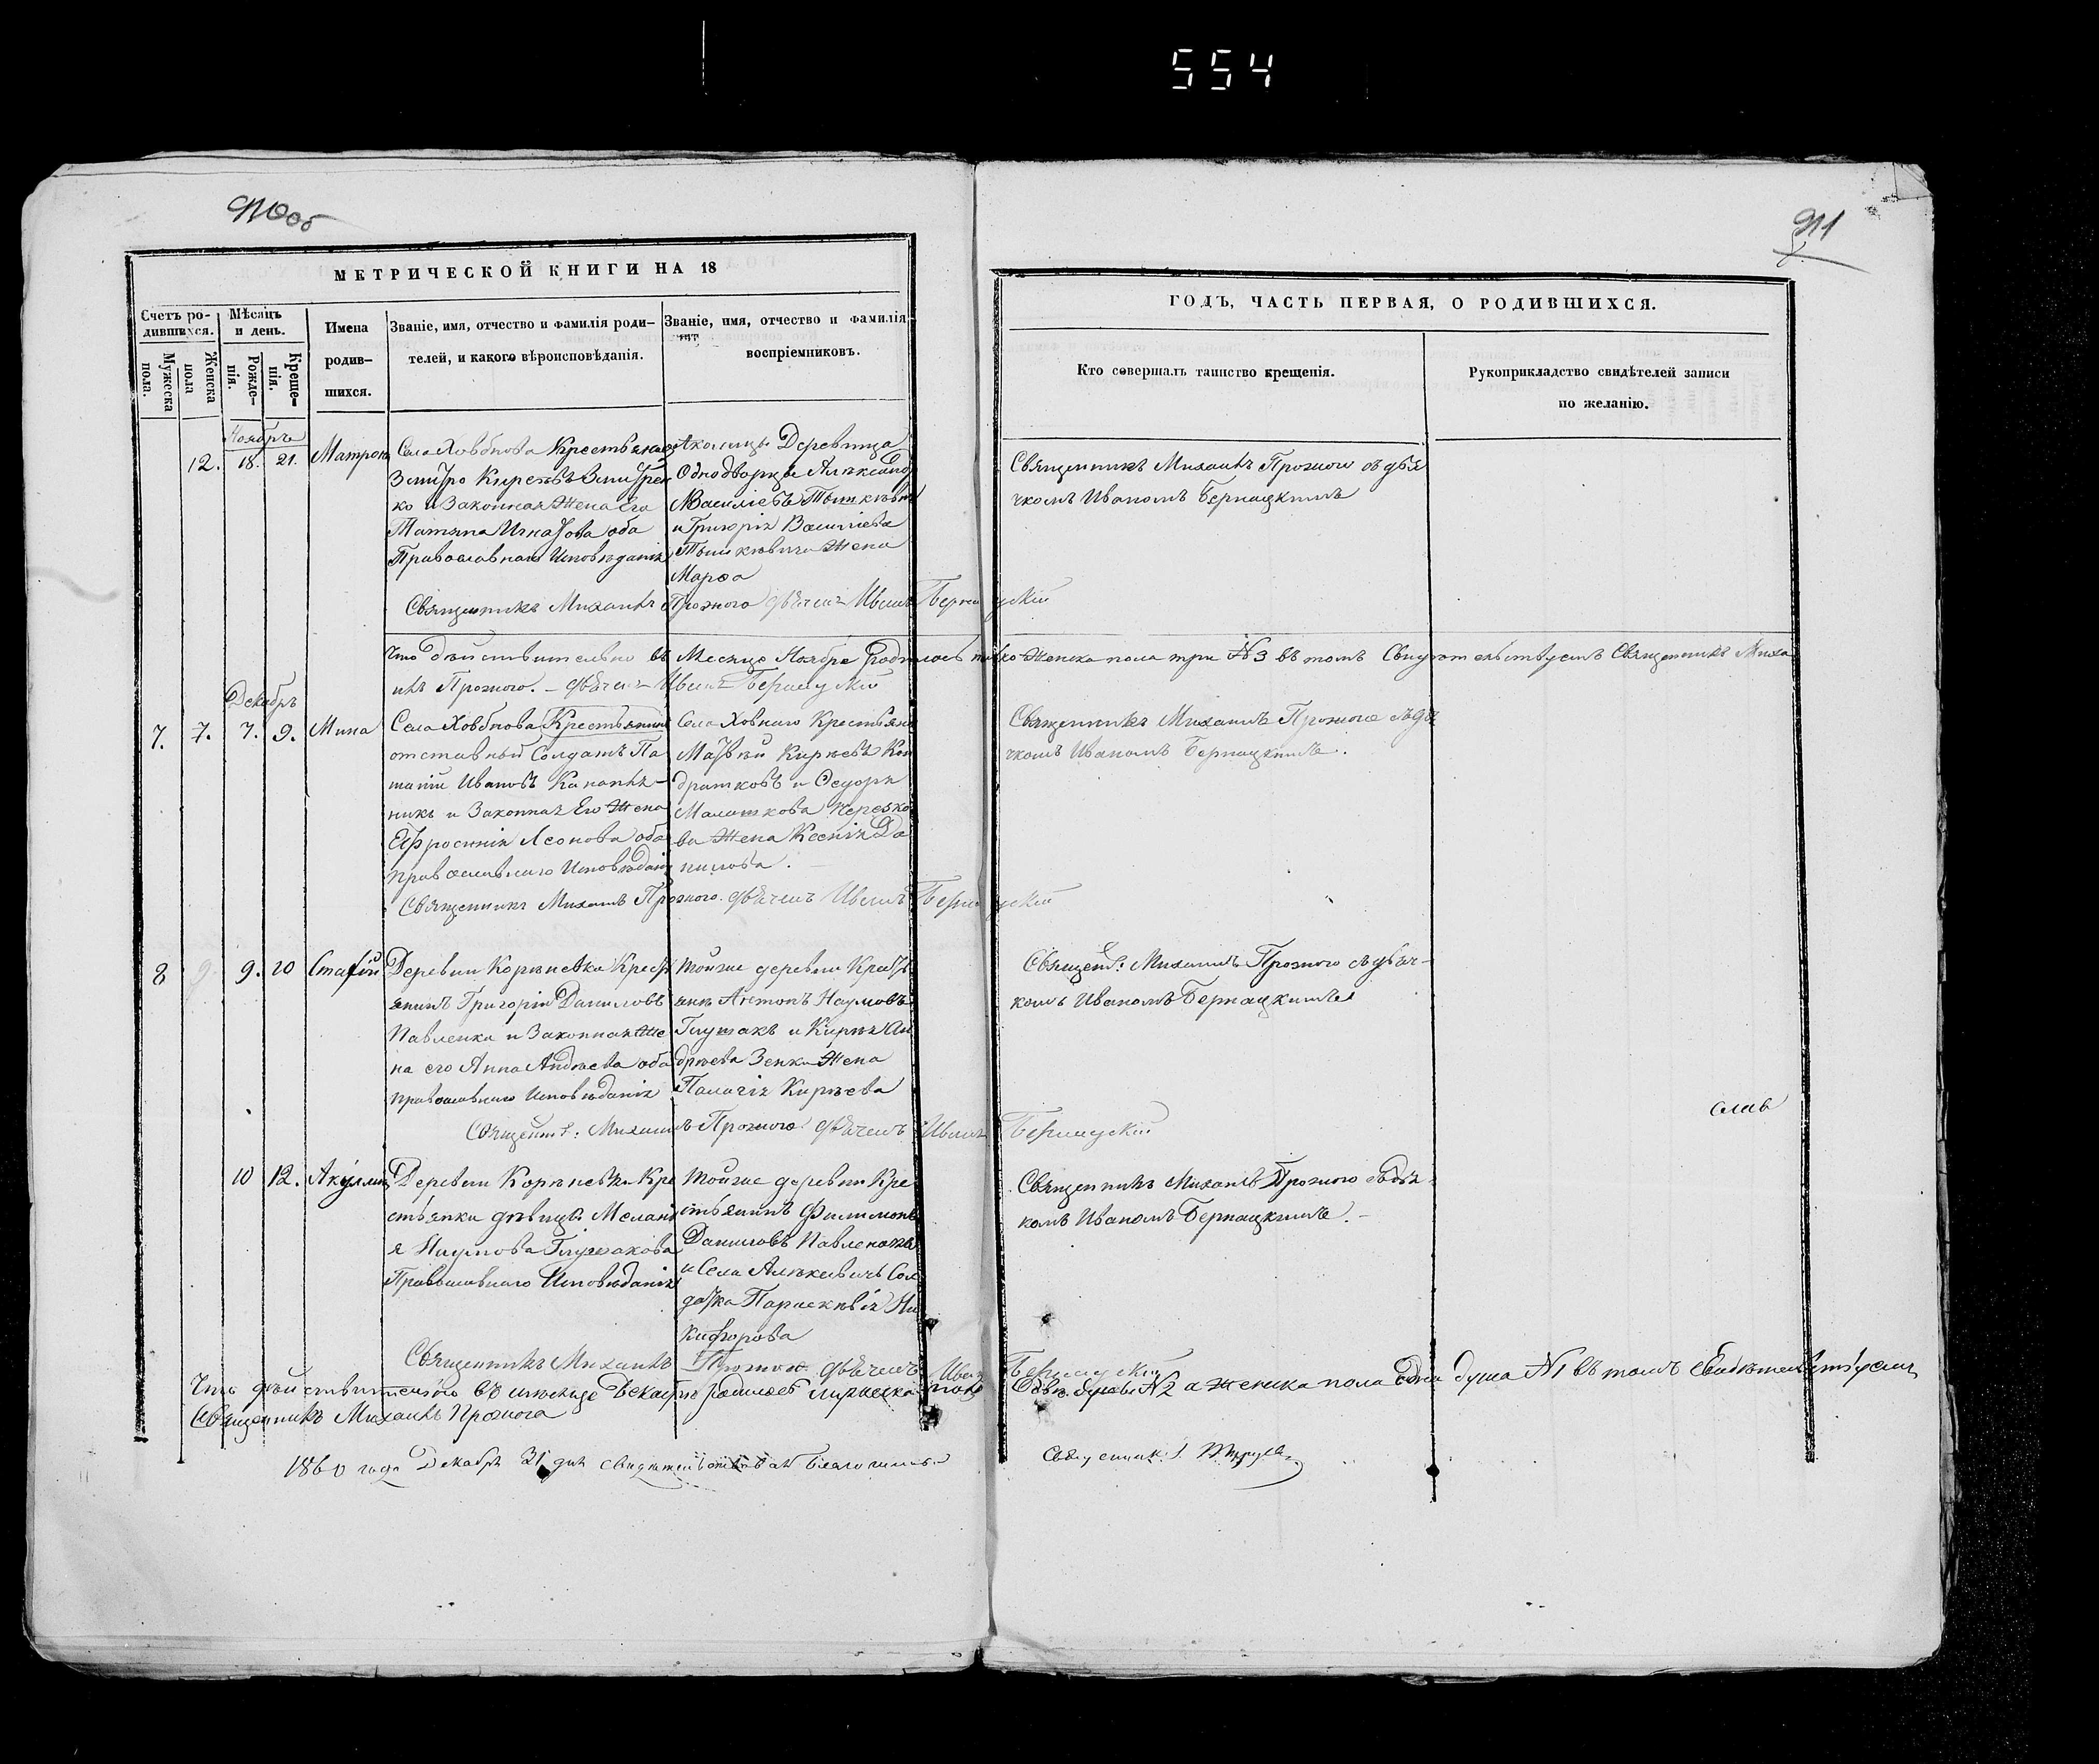 554
910об
911
МЕТРИЧЕСКОЙ КНИГИ НА 18
ГОДЪ, ЧАСТЬ ПЕРВАЯ, О РОДИВШИХСЯ.
Счетъ ро-
дившихся.
Мужеска
пола.
Женска
пола
Мѣсяцъ
и день.
Рожде-
нія.
Креще-
нія.
Имена
родив-
шихся.
Званіе, имя, отчество и фамилія роди-
телей, и какого вѣроисповѣданія.
Званіе, имя, отчество и фамилія
воспріемниковъ.
Кто совершалъ таинство крещенія.
Рукоприкладство свидѣтелей записи
по желанію.
Ноябрь
12. 18. 21. Матрона
Села Ховбнова Крестьянинъ
Змитро Кирѣевъ Змитрен
ко и Законная Жена Его
Татяна Игнатова оба
Православнаго Исповѣданія
Околицы Деревища
Однодворцы Алѣксандръ
Василіевъ
и Григорія Василіева
Жена
Марѳа
Священникъ Михаилъ Прожого съ дья
чкомъ Иваномъ Бернацкимъ
Священникъ Михаилъ Прожого дьячекъ Иванъ Бернацкій
Что дѣйствительно въ Месяце Ноябре родилось только Женска пола три №3 въ томъ Свидѣтельствуетъ Священникъ Миха
илъ Прожого. – дьячекъ Иванъ Бернацкій
Декабрь
7. 7. 7. 9. Мина
Села Ховбнова Крестьянинъ
отставный Солдатъ По
тапій Ивановъ
никъ и Законная Его Жена
Ефросинія Леонова оба
православнаго Исповѣданія
Села Ховнаго Крестьяне
Матвѣй Кирѣевъ Кон
дратковъ и Ѳедора
Малашкова
ва Жена Ксенія Да
нилова.
Священникъ Михаилъ Прожого съ дья
чкомъ Иваномъ Бернацкимъ.
Священникъ Михаилъ Прожого. дьячекъ Иванъ Бернацкій
8 9. 9. 20 Статій
Деревни Корѣневки Крест
янинъ Григорій Даниловъ
Павленки и Законная Же
на его Анна Андрѣева оба
православнаго Исповѣданія
Тойже деревни Крест
янъ Антонъ Наумовъ
Глушакъ и Кирѣя Ан
дрѣева Зенки Жена
Палагія Кирѣева
Священ: Михаилъ Прожого съ дьяч-
комъ Иваномъ Бернацкимъ
слав
Священ: Михаилъ Прожого дьячекъ Иванъ Бернацкій
10 12. Акулина
Деревни Корѣневки Кре
стьянки дѣвицы Мелані
я Наумова Глушакова
Православнаго Исповѣданія
Тойже деревни Кре
стьянинъ Филимонъ
Даниловъ Павленокъ
и Села Алѣксѣвичъ Сол
датка Параскѣвія Ни
кифорова
Священникъ Михаилъ Прожого съ дья
комъ Иваномъ Бернацкимъ. –
Священникъ Михаилъ Прожого дьячекъ Иванъ Бернацкій
Что дѣйствительно въ мѣсяце Декабрѣ родилось мужеска пола Двѣ души №2 а женска пола Една душа №1 въ томъ Свидѣтельствуетъ
Священникъ Михаилъ Прожога
1860 года Декабря 31 дня свидѣтельствовалъ Благочинный
Священник: